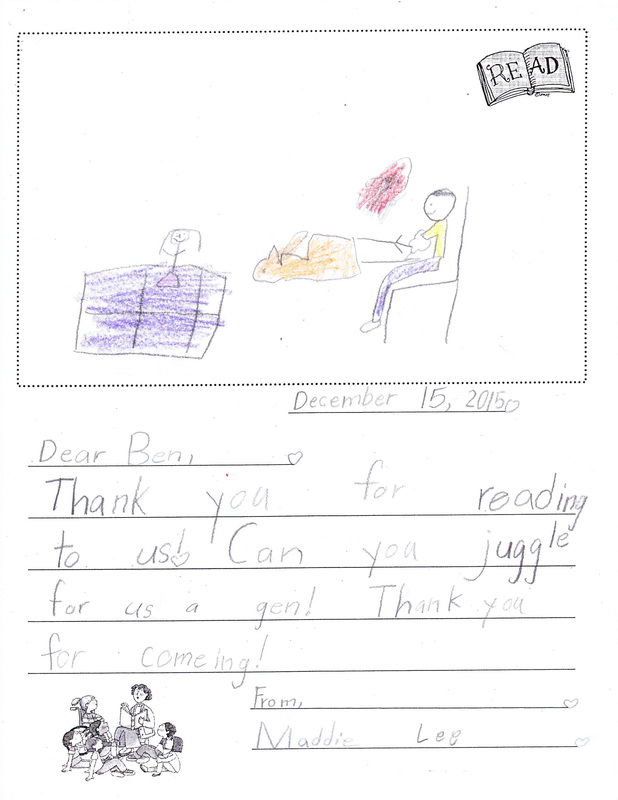 READ
December 15, 2015
Dear Ben,
Thank you for reading
to us! Can you juggle
for us a gen! Thank you
for comeing!
From,
Maddie Lee